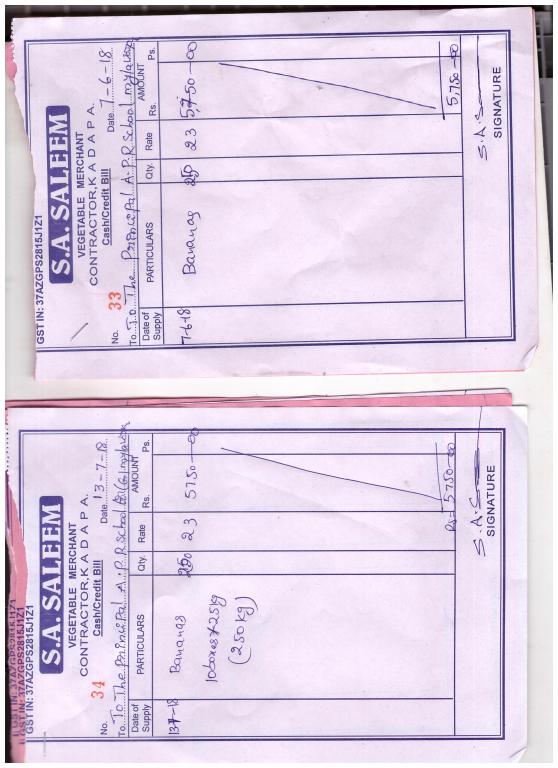 GST IN: 37AZGPS2815J1Z1
S.A. SALEEM
VEGETABLE MERCHANT
CONTRACTOR, K A D A P A.
Cash/Credit Bill
No. 33 Date 7-6-18
To To The Principal A.P.R School
Date of Supply PARTICULARS Qty. Rate AMOUNT Rs. Ps.
7-6-18 Bananas 250 23 5,750-00
5,750-00
S.A.S
SIGNATURE
GST IN: 37AZGPS2815J1Z1
GST IN: 37AZGPS2815J1Z1
GST IN: 37AZGPS2815J1Z1
S.A. SALEEM
VEGETABLE MERCHANT
CONTRACTOR, K A D A P A.
Cash/Credit Bill
No. 34 Date 13-7-18
To To The Principal A.P.R School
Date of Supply PARTICULARS Qty. Rate AMOUNT Rs. Ps.
137-18 Bananas 250 23 5750-00
10boxes*25kg
(250kg)
Rs= 5750-00
S.A.S
SIGNATURE